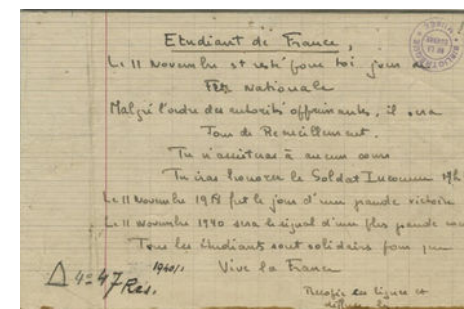 Etudiant de France,
Le 11 Novembre est resté pour toi jour de
Fête Nationale
Malgré l'ordre des autorités opprimantes, il sera
Jour de Recueillement.
Tu n'assisteras à aucun cours
Tu iras honorer le Soldat Inconnu 17h
Le 11 Novembre 1918 fut le jour d'une grande victoire
Le 11 novembre 1940 sera le signal d'une plus grande
Tous les étudiants sont solidaires pour que
Vive la France
Δ 4= 47 Res.
Recopie ces lignes et
diffuse les